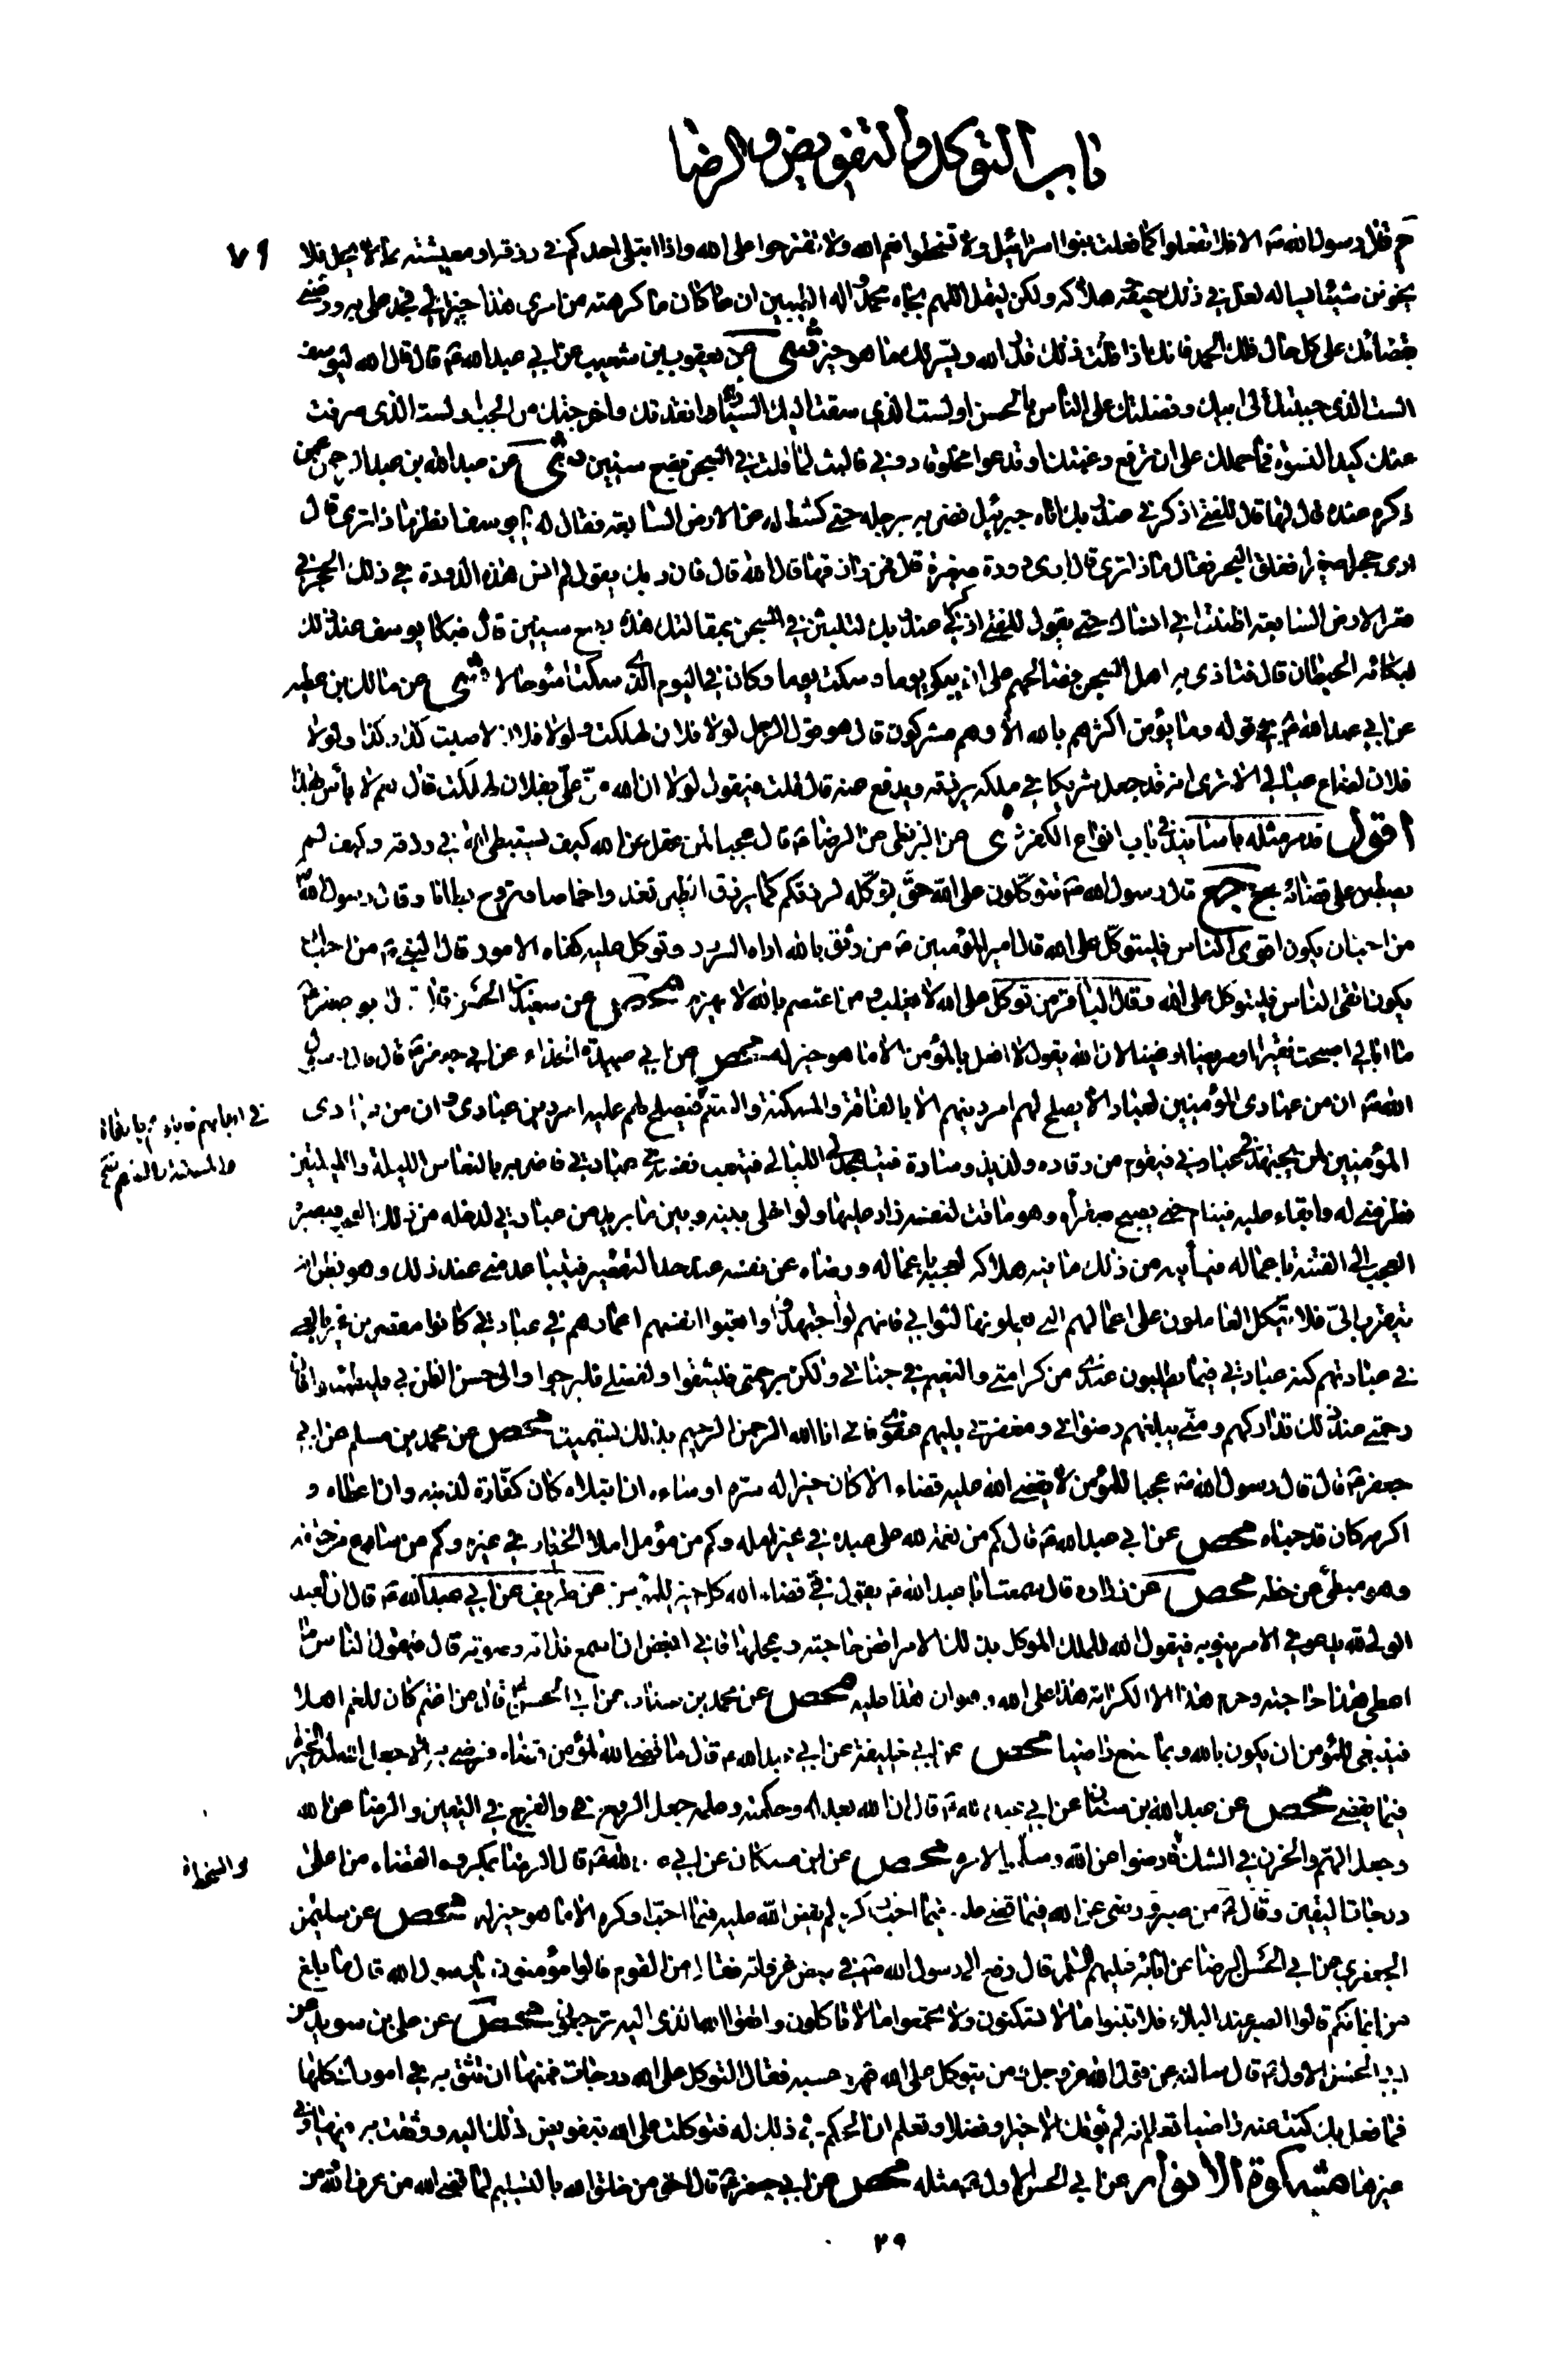 باب التوكل والتفويض والرضا
٧٩
م قال رسول الله ص الا فلا تفعلوا كما فعلت بنوا اسرائيل ولا تسخطوا نعم الله ولا تقترحوا على الله واذا ابتلى احدكم في رزقه او معيشته بما لا يحب فلا
شيئا يسأله لعل في ذلك حتفه وهلاكه ولكن ليقل اللهم بجاه محمد واله الطيبين ان كان ما كرهته من امري هذا خيرا لي
بقضائك على كل حال فلك الحمد فانك اذا قلت ذلك قدر الله ويسر لك ما هو خير شى عن يعقوب بن شعيب عن ابي عبد الله ع قال قال الله ليوسف
الست الذي حببتك الى ابيك وفضلتك على الناس بالحسن اولست الذي سقت اليك السيارة وانقذتك واخرجتك من الجب اولست الذي صرفت
عنك كيد النسوة فما حملك على ان ترفع رغبتك او تدعوا مخلوقا دوني فالبث لما قلت في السجن بضع سنين شى عن عبد الله بن عبد الرحمن عمن
ذكره عنه قال لما قال للفتى اذكرني عند ربك اتاه جبرئيل فضربه برجله حتى كشط له عن الارض السابعة فقال له يا يوسف انظر ماذا ترى قال
ارى حجرا صغيرا ففلق الحجر فقال ماذا ترى قال ارى دودة صغيرة قال فمن رازقها قال الله قال فان ربك يقول لم انس هذه الدودة في ذلك الحجر في
قعر الارض السابعة اظننت اني انساك حتى تقول للفتى اذكرني عند ربك لتلبثن في السجن بمقالتك هذه بضع سنين قال فبكا يوسف عند ذلك
لبكائه الحيطان قال فتاذى به اهل السجن فصالحهم على ان يبكي يوما ويسكت يوما وكان في اليوم الذي يسكت اسوء حالا شى عن مالك بن عطية
عن ابي عبد الله ع في قوله وما يؤمن اكثرهم بالله الا وهم مشركون قال هو قول الرجل لولا فلان لهلكت ولولا فلان لاصبت كذا وكذا ولولا
فلان لضاع عيالي الا ترى انه قد جعل شريكا في ملكه يرزقه ويدفع عنه قال قلت فيقول لولا ان الله من علي بفلان لهلكت قال نعم لا باس بهذا
اقول قد مر مثله باسانيد في باب انواع الكفر شى عن البزنطي عن الرضا ع قال عجبا لمن عقل عن الله كيف يستبطئ الله في رزقه وكيف لم
يصطبر على قضائه جع قال رسول الله ص لو تتوكلون على الله حق توكله لرزقكم كما يرزق الطير تغدوا خماصا وتروح بطانا وقال رسول الله ص
من احب ان يكون اقوى الناس فليتوكل على الله قال امير المؤمنين ع من وثق بالله اراه السرور وتوكل عليه كفاه الامور قال النبي ص من احب ان
يكون اتقى الناس فليتوكل على الله وقال الباقر ع من توكل على الله لا يغلب ومن اعتصم بالله لا يهزم محص عن سعيد بن الحسن قال قال ابو جعفر ع
ما ابالي اصبحت فقيرا او مريضا او غنيا لان الله يقول لا افعل بالمؤمن الا ما هو خير له محص عن ابي عبيدة الحذاء عن ابي جعفر ع قال قال رسول
الله ص ان من عبادي المؤمنين لعبادا لا يصلح لهم امر دينهم الا بالفاقة والمسكنة والسقم فيصلح لهم عليه امر دينهم عبادي وان من عبادي
المؤمنين لمن يجتهد في عبادتي فيقوم من رقاده ولذيذ وسادة فيتهجد لي الليالي فيتعب نفسه في عبادتي فاضربه بالنعاس الليلة والليلتين
نظرا مني له وابقاء عليه فينام حتى يصبح فيقوم وهو ماقت لنفسه زار عليها ولو اخلي بينه وبين ما يريد من عبادتي لدخله من ذلك العجب فيصيره
العجب الى الفتنة باعماله فياتيه من ذلك ما فيه هلاكه لعجبه باعماله ورضاه عن نفسه عند حد التقصير فيتباعد مني عند ذلك وهو يظن انه
يتقرب الي فلا يتكل العاملون على اعمالهم التي يعملونها لثوابي فانهم لو اجتهدوا واتعبوا انفسهم اعمارهم في عبادتي كانوا مقصرين غير بالغين
في عبادتهم كنه عبادتي فيما يطلبون عندي من كرامتي والنعيم في جناتي ولكن برحمتي فليثقوا ولفضلي فليرجوا والى حسن الظن بي فليطمئنوا فان
رحمتي عند ذلك تداركهم ومني يبلغهم رضواني ومغفرتي يلبسهم عفوي فاني انا الله الرحمن الرحيم بذلك تسميت محص عن محمد بن مسلم عن ابي
جعفر ع قال قال رسول الله ص عجبا للمؤمن لا يقضي الله عليه قضاء الا كان خيرا له سره او ساءه ان ابتلاه كان كفارة لذنبه وان اعطاه و
اكرمه كان قد حباه محص عن ابي عبد الله ع قال كم من نعمة لله على عبده في غير امله وكم من مؤمل املا الخيار في غيره وكم من ساع من حتفه
وهو مبطئ عن حظه محص عن زرارة قال سمعت ابا عبد الله ع يقول في قضاء الله كل خير للمؤمن عن طريف عن ابي عبد الله ع قال ان العبد
الولي لله يدعو في الامر ينوبه فيقول الله للملك الموكل بذلك الامر اقض حاجته ولا تعجلها فاني ابغض ان اسمع نداءه وصوته قال فيقول الناس ما
اعطي هذا حاجته وحرم هذا الا لكرامة هذا على الله وهوان هذا عليه محص عن محمد بن سنان عن ابي الحسن ع قال من اغتم كان للغم اهلا
فينبغي للمؤمن ان يكون بالله وبما صنع راضيا محص عن ابي خليفة عن ابي عبد الله ع قال ما قضى الله لمؤمن قضاء فرضي به الا جعل الله له الخيرة
فيما يقضي محص عن عبد الله بن سنان عن ابي عبد الله ع قال ان الله بعدله وحكمته وعلمه جعل الروح والفرج في اليقين والرضا عن الله
وجعل الهم والحزن في الشك فارضوا عن الله وسلموا لامره محص عن ابن مسكان عن ابي عبد الله ع قال الرضا بمكروه القضاء من اعلى
والسخط
درجات اليقين وقال ع من صبر ورضي عن الله فيما قضى عليه فيما احب وكره لم يقض الله عليه فيما احب او كره الا ما هو خير له محص عن سليمن
الجعفري عن ابي الحسن الرضا عن ابائه عليهم السلم قال رفع الى رسول الله ص في بعض غزواته فقال من القوم قالوا مؤمنون يا رسول الله قال ما بلغ
من ايمانكم قالوا الصبر عند البلاء فلا تبنوا ما لا تسكنون ولا تجمعوا ما لا تاكلون واتقوا الله الذي اليه ترجعون محص عن علي بن سويد عن
ابي الحسن الاول ع قال سالته عن قول الله عز وجل ومن يتوكل على الله فهو حسبه فقال التوكل على الله درجات فمنها ان تثق به في امورك كلها
فما فعل بك كنت عنه راضيا تعلم انه لم يؤتك الا خيرا وفضلا وتعلم ان الحكم في ذلك له فتوكلت على الله بتفويض ذلك اليه ووثقت به فيها وفي
غيرها مشكوة الانوار عن ابي الحسن الاول ع مثله محص عن ابي جعفر ع قال احق من خلق الله بالتسليم لما قضى الله من عرف الله من
٢٩